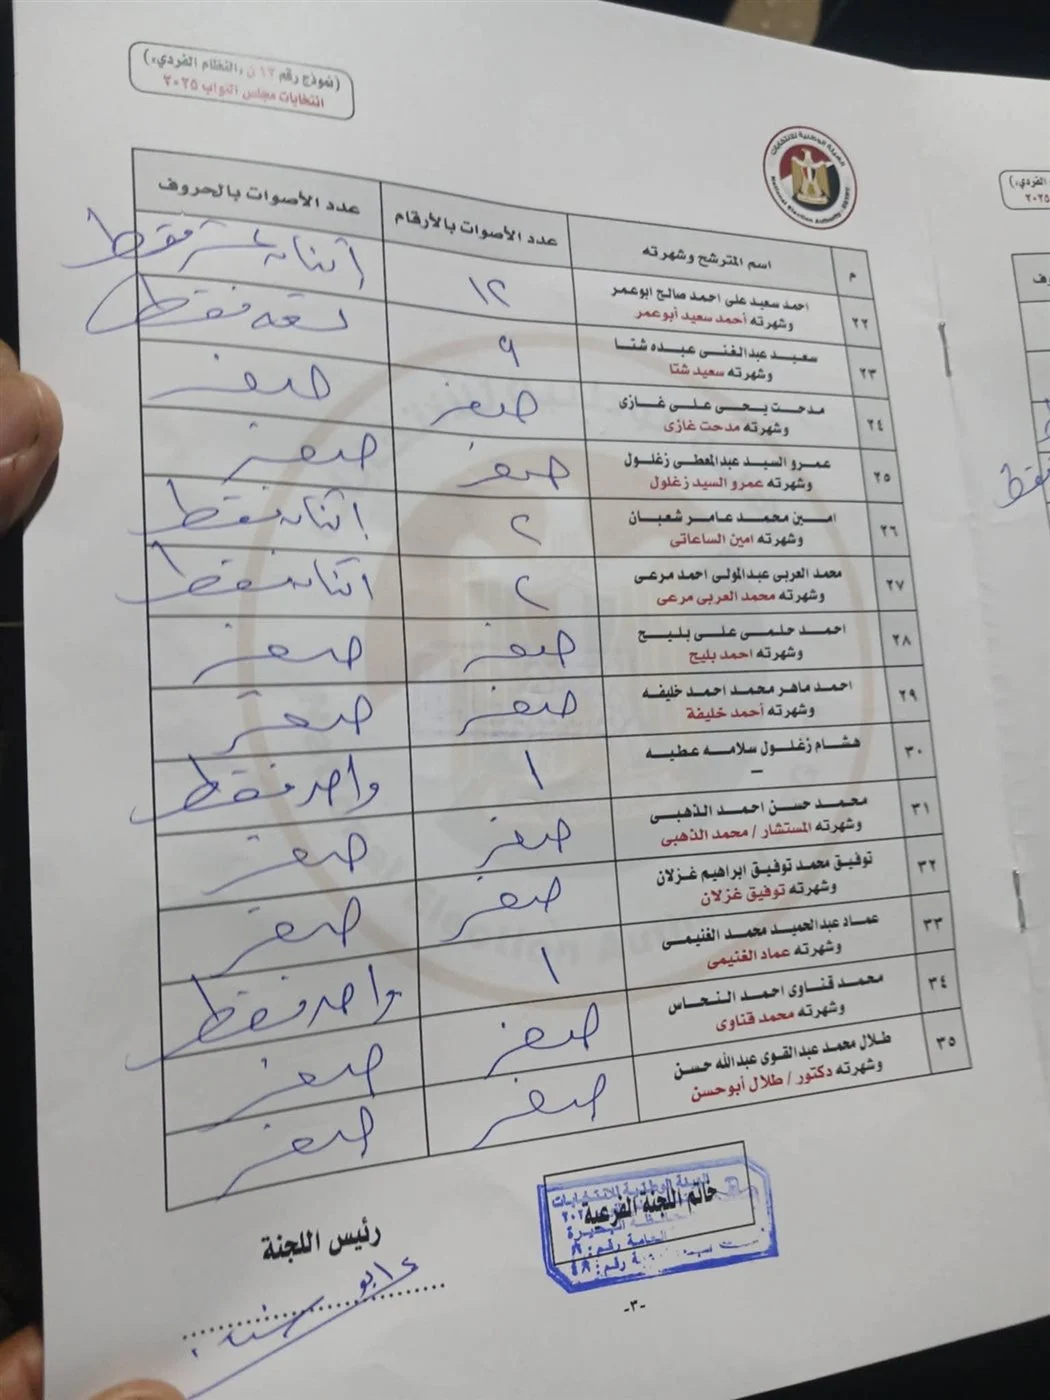 (نموذج رقم ١٢ ن «النظام الفردي»)
انتخابات مجلس النواب ٢٠٢٥
الهيئة الوطنية للانتخابات
National Election Authority
م
اسم المترشح وشهرته
عدد الأصوات بالأرقام
عدد الأصوات بالحروف
٢٢
احمد سعيد على احمد صالح ابوعمر
وشهرته أحمد سعيد أبوعمر
١٢
اثنان عشر فقط
٢٣
سعيد عبدالغنى عبده شتا
وشهرته سعيد شتا
٩
تسعه فقط
٢٤
مدحت يحى على غازى
وشهرته مدحت غازى
صفر
صفر
٢٥
عمرو السيد عبدالمعطى زغلول
وشهرته عمرو السيد زغلول
صفر
صفر
٢٦
امين محمد عامر شعبان
وشهرته امين الساعاتى
٢
اثنان فقط
٢٧
محمد العربى عبدالمولى احمد مرعى
وشهرته محمد العربى مرعى
٢
اثنان فقط
٢٨
احمد حلمى على بليح
وشهرته احمد بليح
صفر
صفر
٢٩
احمد ماهر محمد احمد خليفه
وشهرته أحمد خليفة
صفر
صفر
٣٠
هشام زغلول سلامه عطيه
–
١
واحد فقط
٣١
محمد حسن احمد الذهبى
وشهرته المستشار / محمد الذهبى
صفر
صفر
٣٢
توفيق محمد توفيق ابراهيم غزلان
وشهرته توفيق غزلان
صفر
صفر
٣٣
عماد عبدالحميد محمد الغنيمى
وشهرته عماد الغنيمى
١
واحد فقط
٣٤
محمد قناوى احمد النحاس
وشهرته محمد قناوى
صفر
صفر
٣٥
طلال محمد عبدالقوى عبدالله حسن
وشهرته دكتور / طلال أبوحسن
صفر
صفر
خاتم اللجنة الفرعية
رئيس اللجنة
-٣-